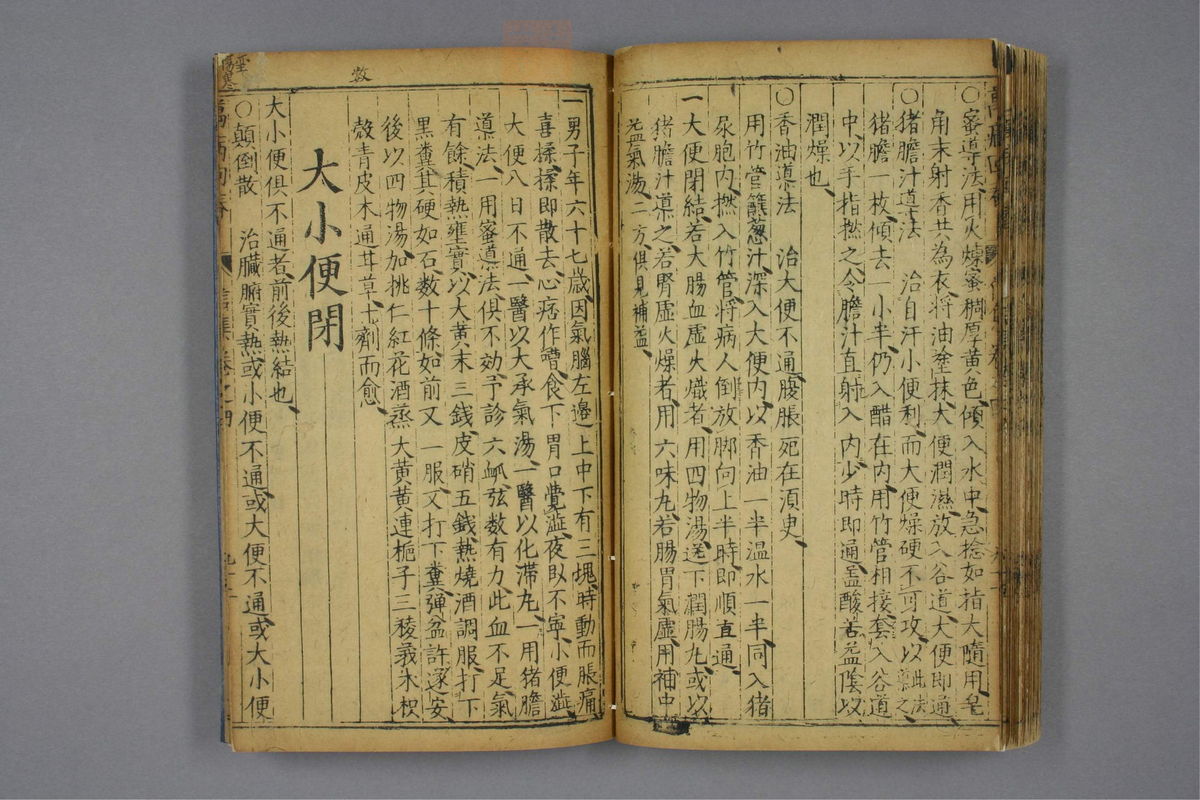 ○蜜導法用火煉蜜稠厚黃色傾入水中急捻如指大隨用皂
角末射香共為衣將油塗抹大便潤濕放入谷道大便即通
○猪膽汁導法　治自汗小便利而大便燥硬不可攻以此法導之
猪膽一枚傾去一小半仍入醋在內用竹管相接套入谷道
中以手指撚之令膽汁直射入內少時即通盖酸苦益陰以
潤燥也
○香油導法　治大便不通腹脹死在湏史
用竹管蘸葱汁深入大便內以香油一半温水一半同入猪
尿胞內撚入竹管將病人倒放脚向上半時即順直通
一大便閉結若大腸血虛火熾者用四物湯送下潤腸丸或以
猪膽汁導之若腎虛火燥者用六味丸若腸胃氣虛用補中
益氣湯二方俱見補益
一男子年六十七歲因氣腦左邊上中下有三塊時動而脹痛
喜揉揉即散去心痞作嘈食下胃口覺澁夜卧不寧小便澁
大便八日不通一醫以大承氣湯一醫以化滯丸一用猪膽
導法一用蜜導法俱不効予診六脉弦数有力此血不足氣
有餘積熱壅實以大黃末三錢皮硝五錢熱燒酒調服打下
黑糞其硬如石数十條如前又一服又打下糞彈盆許遂安
後以四物湯加挑仁紅花酒蒸大黃黃連梔子三稜莪朮枳
殼青皮木通甘草十劑而愈
数
大小便閉
大小便俱不通者前後熱結也
○顛倒散　治臟腑實熱或小便不通或大便不通或大小便
萬病回春
卷之四